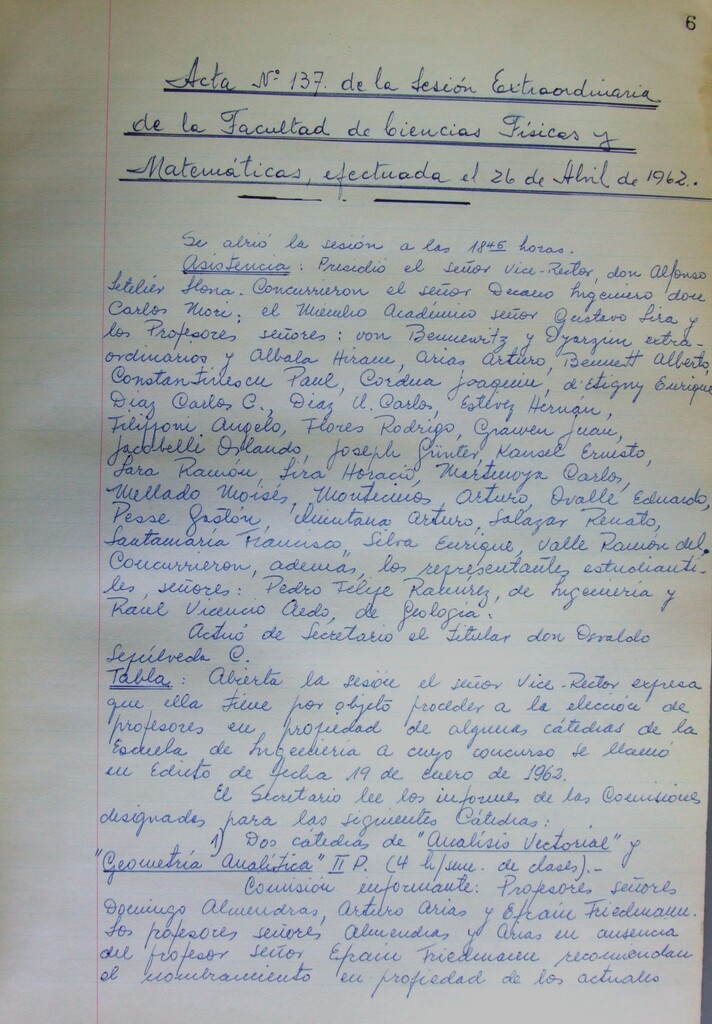 6
Acta Nº 137. de la Sesión Extraordinaria
de la Facultad de Ciencias Físicas y
Matemáticas, efectuada el 26 de Abril de 1962.-
Se abrió la sesión a las 1845 horas.
Asistencia: Presidió el señor Vice-Rector, don Alfonso
Letelier Llona. Concurrieron el señor Decano Ingeniero don
Carlos Mori; el Miembro Académico señor Gustavo Lira y
los Profesores señores: von Bennewitz y Oyarzún extra-
ordinarios y Albala Hiram, Arias Arturo, Bennett Alberto,
Constantinescu Paul, Cordua Joaquin, d'Etigny Enrique
Diaz Carlos C., Diaz U. Carlos, Estévez Hernán,
Filippone Angelo, Flores Rodrigo, Grawen Juan,
Jacobelli Orlando, Joseph Günter, Kansel Ernesto,
Lara Ramón, Lira Horacio, Martinoya Carlos,
Mellado Moisés, Montecinos Arturo, Ovalle Eduardo,
Pesse Gastón, Quintana Arturo, Salazar Renato,
Santamaría Francisco, Silva Enrique, Valle Ramón del.
Concurrieron, además, los representantes estudianti-
les, señores: Pedro Felipe Ramírez, de Ingeniería y
Raul Vicencio Aedo, de Geología.
Actuó de Secretario el Titular don Osvaldo
Sepúlveda C.
Tabla: Abierta la sesión el señor Vice-Rector expresa
que ella tiene por objeto proceder a la elección de
profesores en propiedad de algunas cátedras de la
Escuela de Ingeniería a cuyo concurso se llamó
en Edicto de fecha 19 de enero de 1962.
El Secretario lee los informes de las Comisiones
designadas para las siguientes Cátedras:
1) Dos cátedras de "Analísis Vectorial" y
"Geometría Analítica" II P. (4 h/sem. de clases).-
Comisión informante: Profesores señores
Domingo Almendras, Arturo Arias y Efrain Friedmann.
Los profesores señores Almendras y Arias en ausencia
del profesor señor Efrain Friedmann recomiendan
el nombramiento en propiedad de los actuales